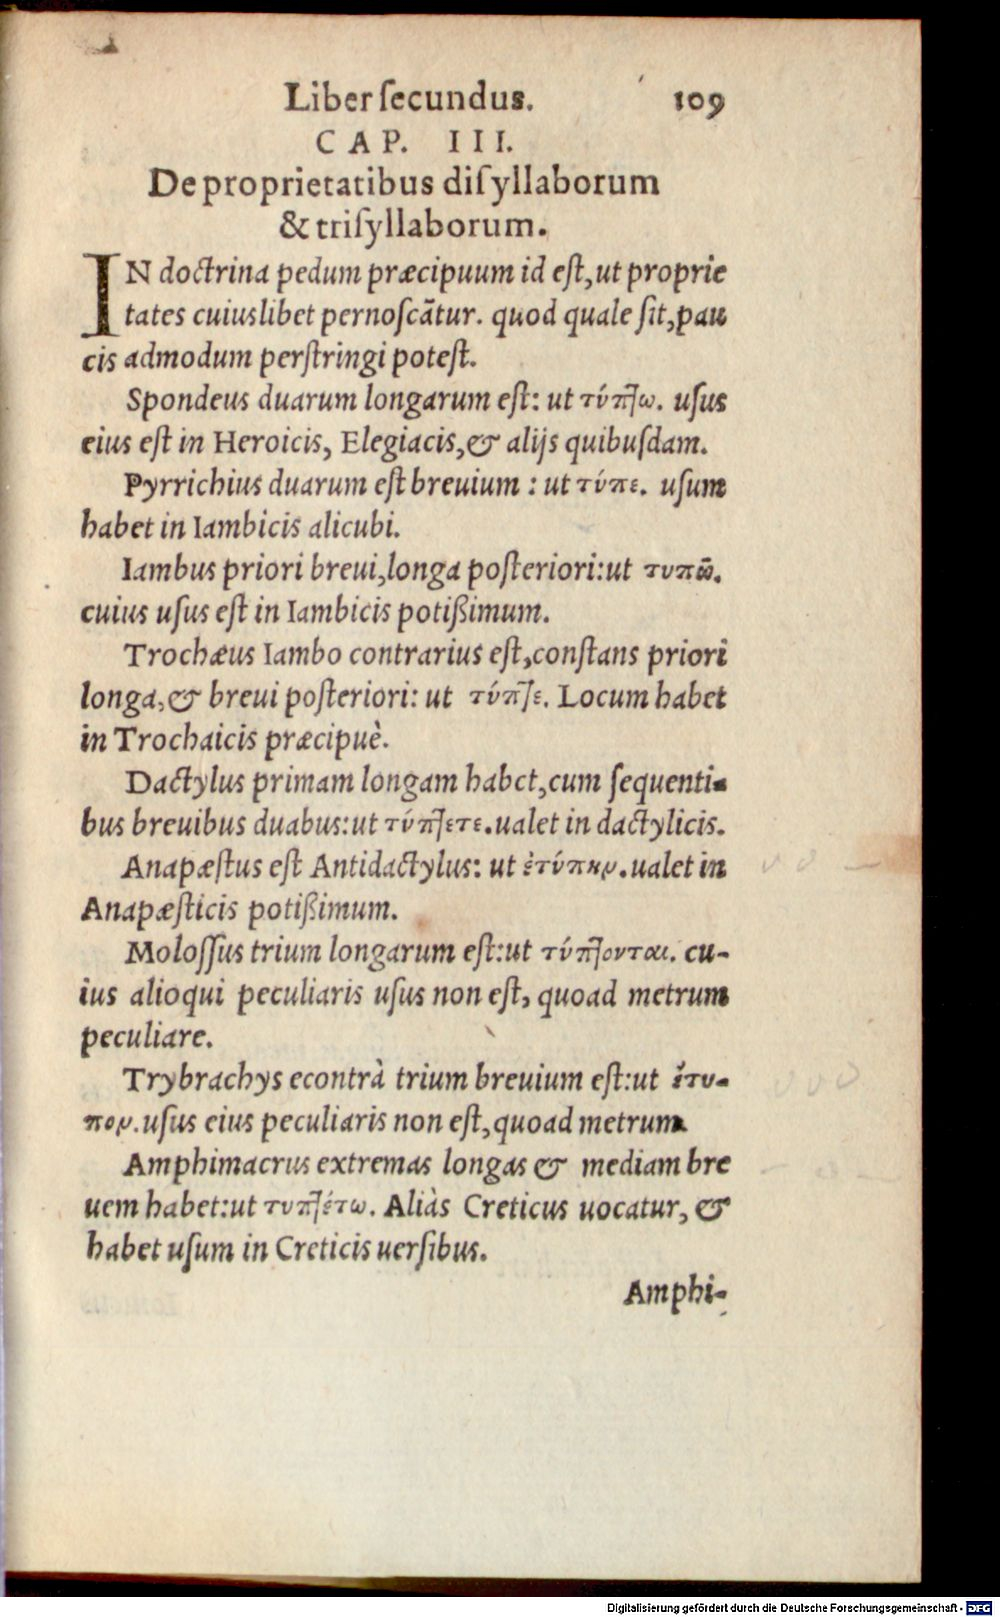 Liber ſecundus. 109
CAP. III.
De proprietatibus diſyllaborum
& triſyllaborum.
IN doctrina pedum præcipuum id eſt, ut proprie
tates cuiuslibet pernoſcãtur. quod quale ſit, pau
cis admodum perſtringi poteſt.
Spondeus duarum longarum eſt: ut τύπτω. uſus
eius eſt in Heroicis, Elegiacis, & alijs quibuſdam.
Pyrrichius duarum eſt breuium : ut τύπε. uſum
habet in Iambicis alicubi.
Iambus priori breui, longa poſteriori: ut τυπῶ.
cuius uſus eſt in Iambicis potißimum.
Trochæus Iambo contrarius eſt, conſtans priori
longa, & breui poſteriori: ut τύπτε. Locum habet
in Trochaicis præcipuè.
Dactylus primam longam habet, cum ſequenti-
bus breuibus duabus: ut τύπτετε. ualet in dactylicis.
Anapæſtus eſt Antidactylus: ut ἐτύπην. ualet in
Anapæſticis potißimum.
Moloſſus trium longarum eſt: ut τύπτονται. cu-
ius alioqui peculiaris uſus non eſt, quoad metrum
peculiare.
Trybrachys econtrà trium breuium eſt: ut ἔτυ-
πον. uſus eius peculiaris non eſt, quoad metrum.
Amphimacrus extremas longas & mediam bre
uem habet: ut τυπτέτω. Aliàs Creticus uocatur, &
habet uſum in Creticis uerſibus.
Amphi-
Digitalisierung gefördert durch die Deutsche Forschungsgemeinschaft - DFG